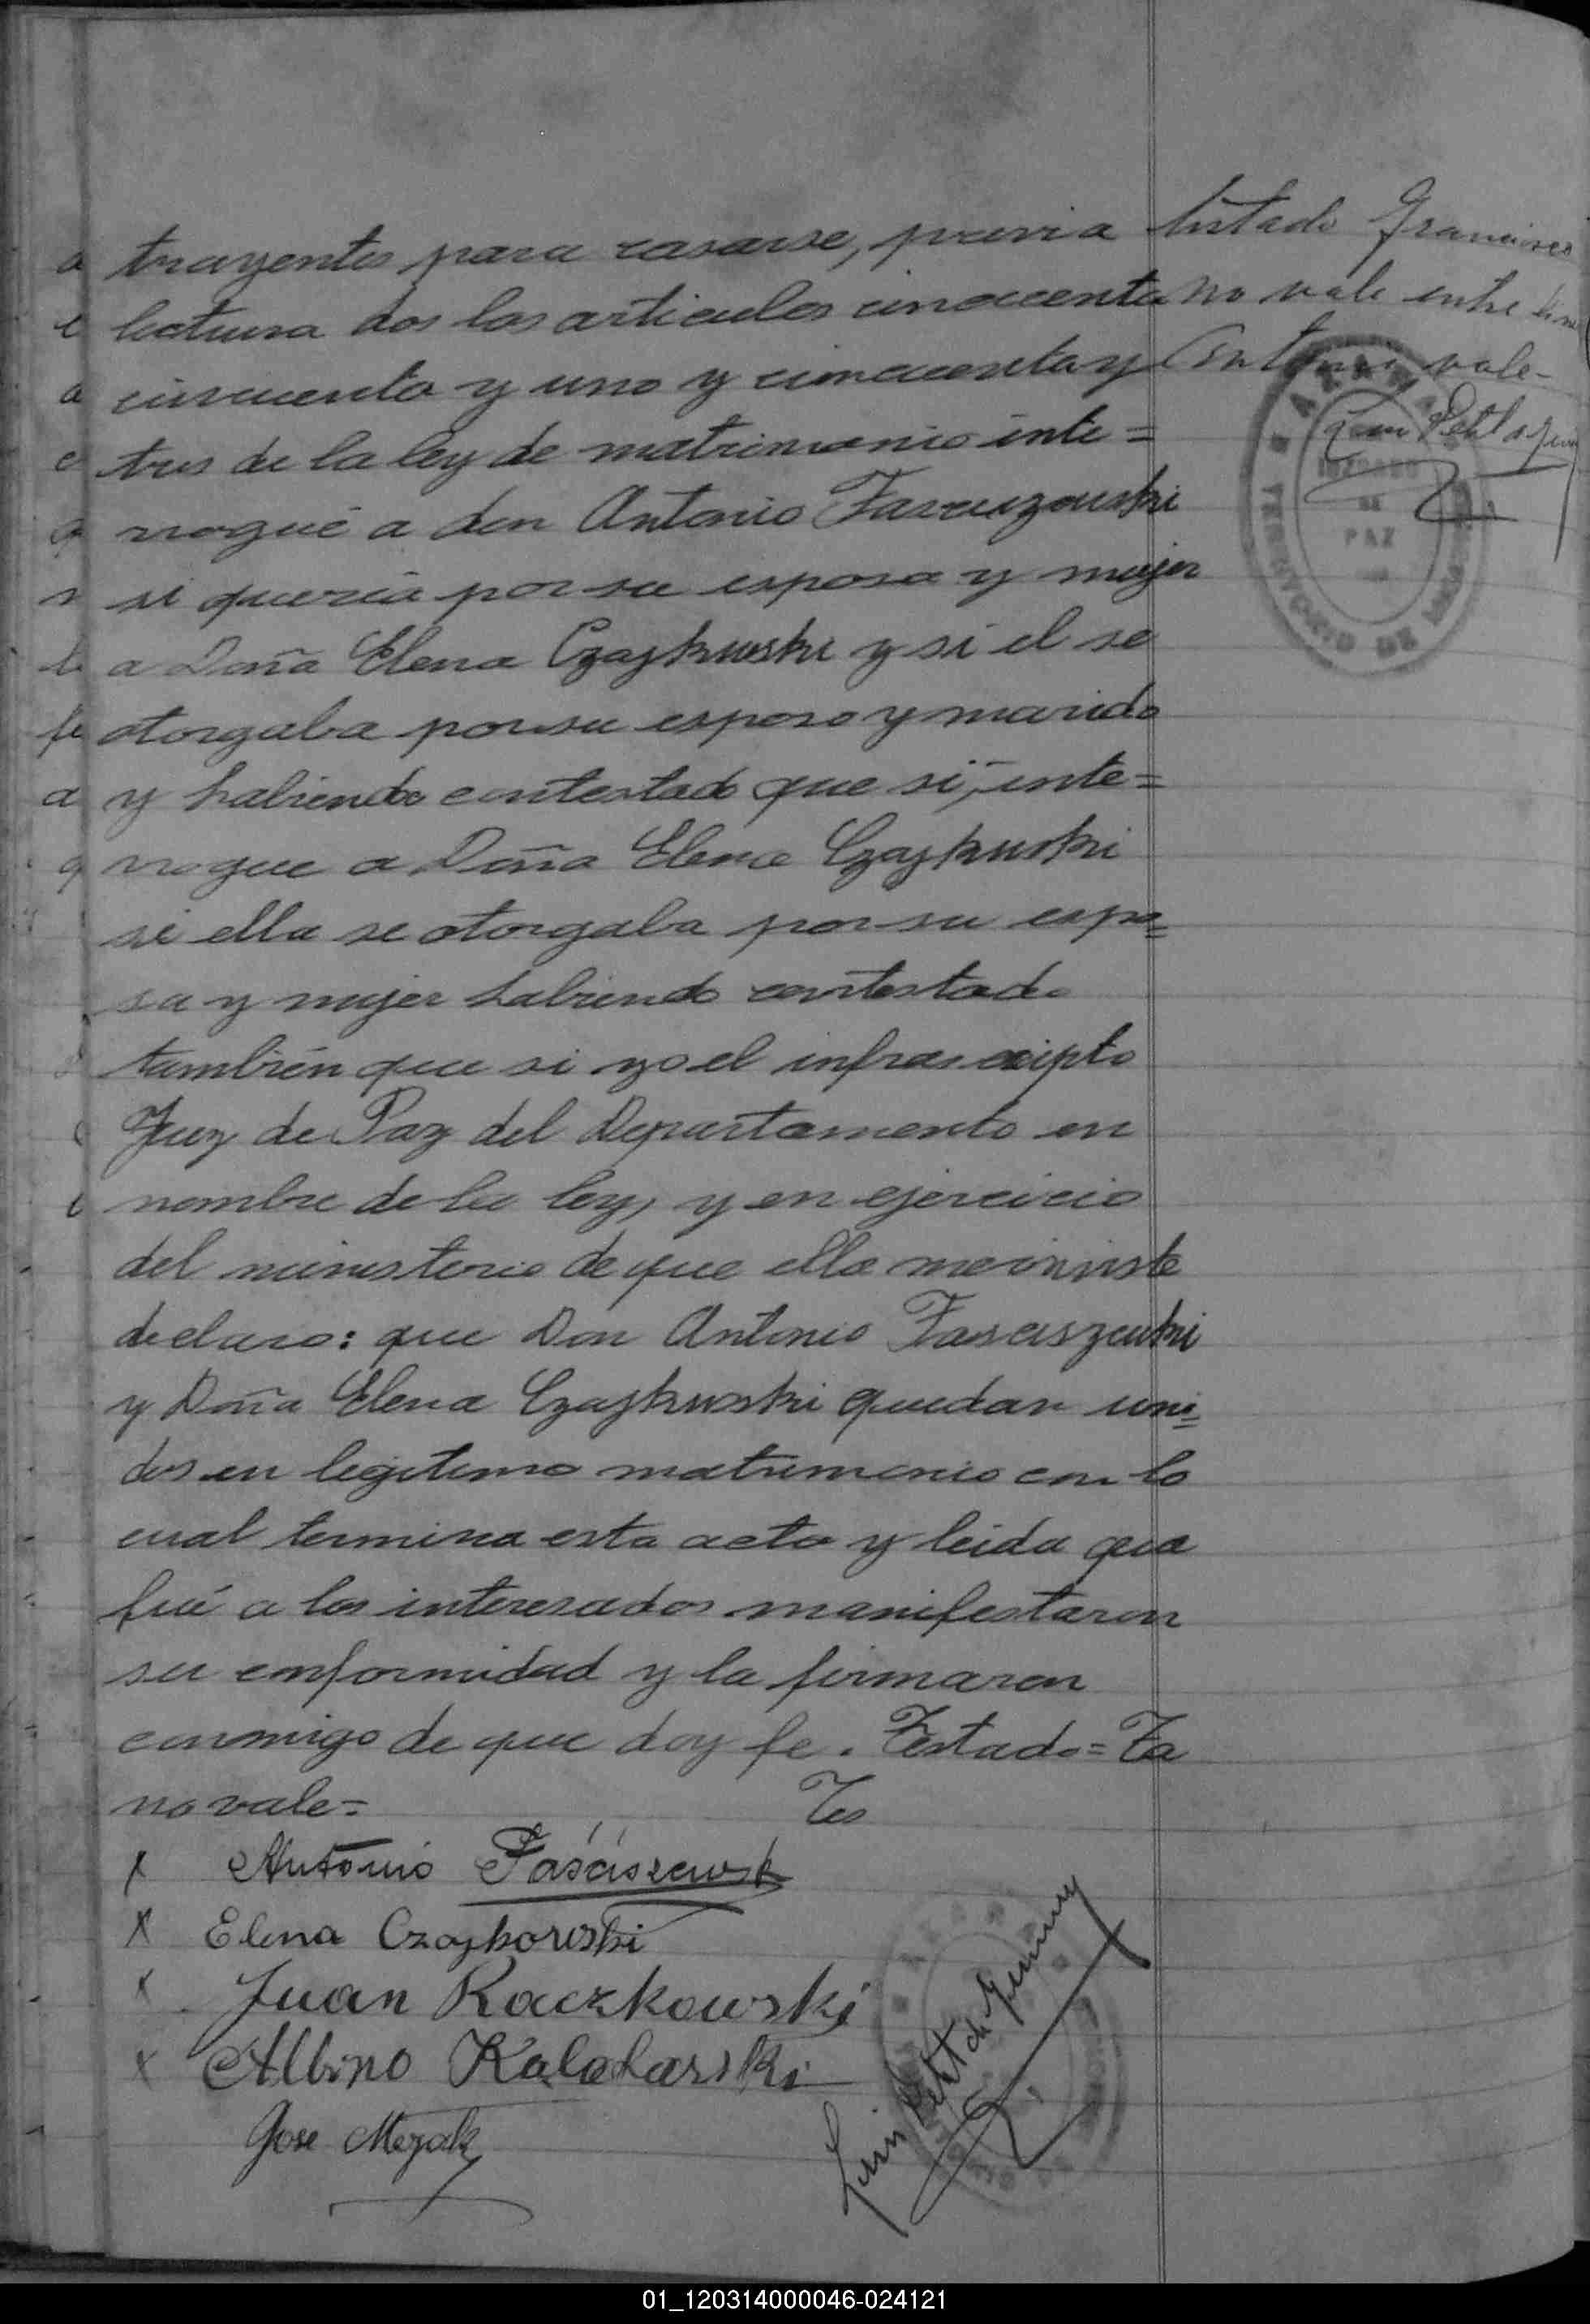 trayentes para casarse, previa
lectura dos los articulos cincuenta
cincuenta y uno y cincuenta y
tres de la ley de matrimonio inte=
rrogué a don Antonio Fasciszowski
si queria por su esposa y mujer
a Doña Elena Czajkuski y si el se
otorgaba por su esposo y marido
y habiendo contestado que si, inte=
rrogue a Doña Elena Czajkuski
si ella se otorgaba por su espo=
sa y mujer habiendo contestado
también que si yo el infrascripto
Juez de Paz del Departamento en
nombre de la ley, y en ejercicio
del ministerio de que ella me inviste
declaro: que Don Antonio Fasciszewski
y Doña Elena Czajkuski quedan uni=
dos en legitimo matrimonio con lo
cual termina esta acta y leida que
fué a los interesados manifestaron
su conformidad y la firmaron
conmigo de que doy fe. Testado=Ta
no vale= Tes
x Antonio Faściszewsk
x Elena Czajkowski
x Juan Raczkowski
x Albino Kalakarski
Jose Mozak
Luis Petit de Jeumuy
testado Francisco
no vale entre lineas
Antonio vale-
Luis Petit de Jeum
JUZGADO
DE
PAZ
TERRITORIO DE MISIONES